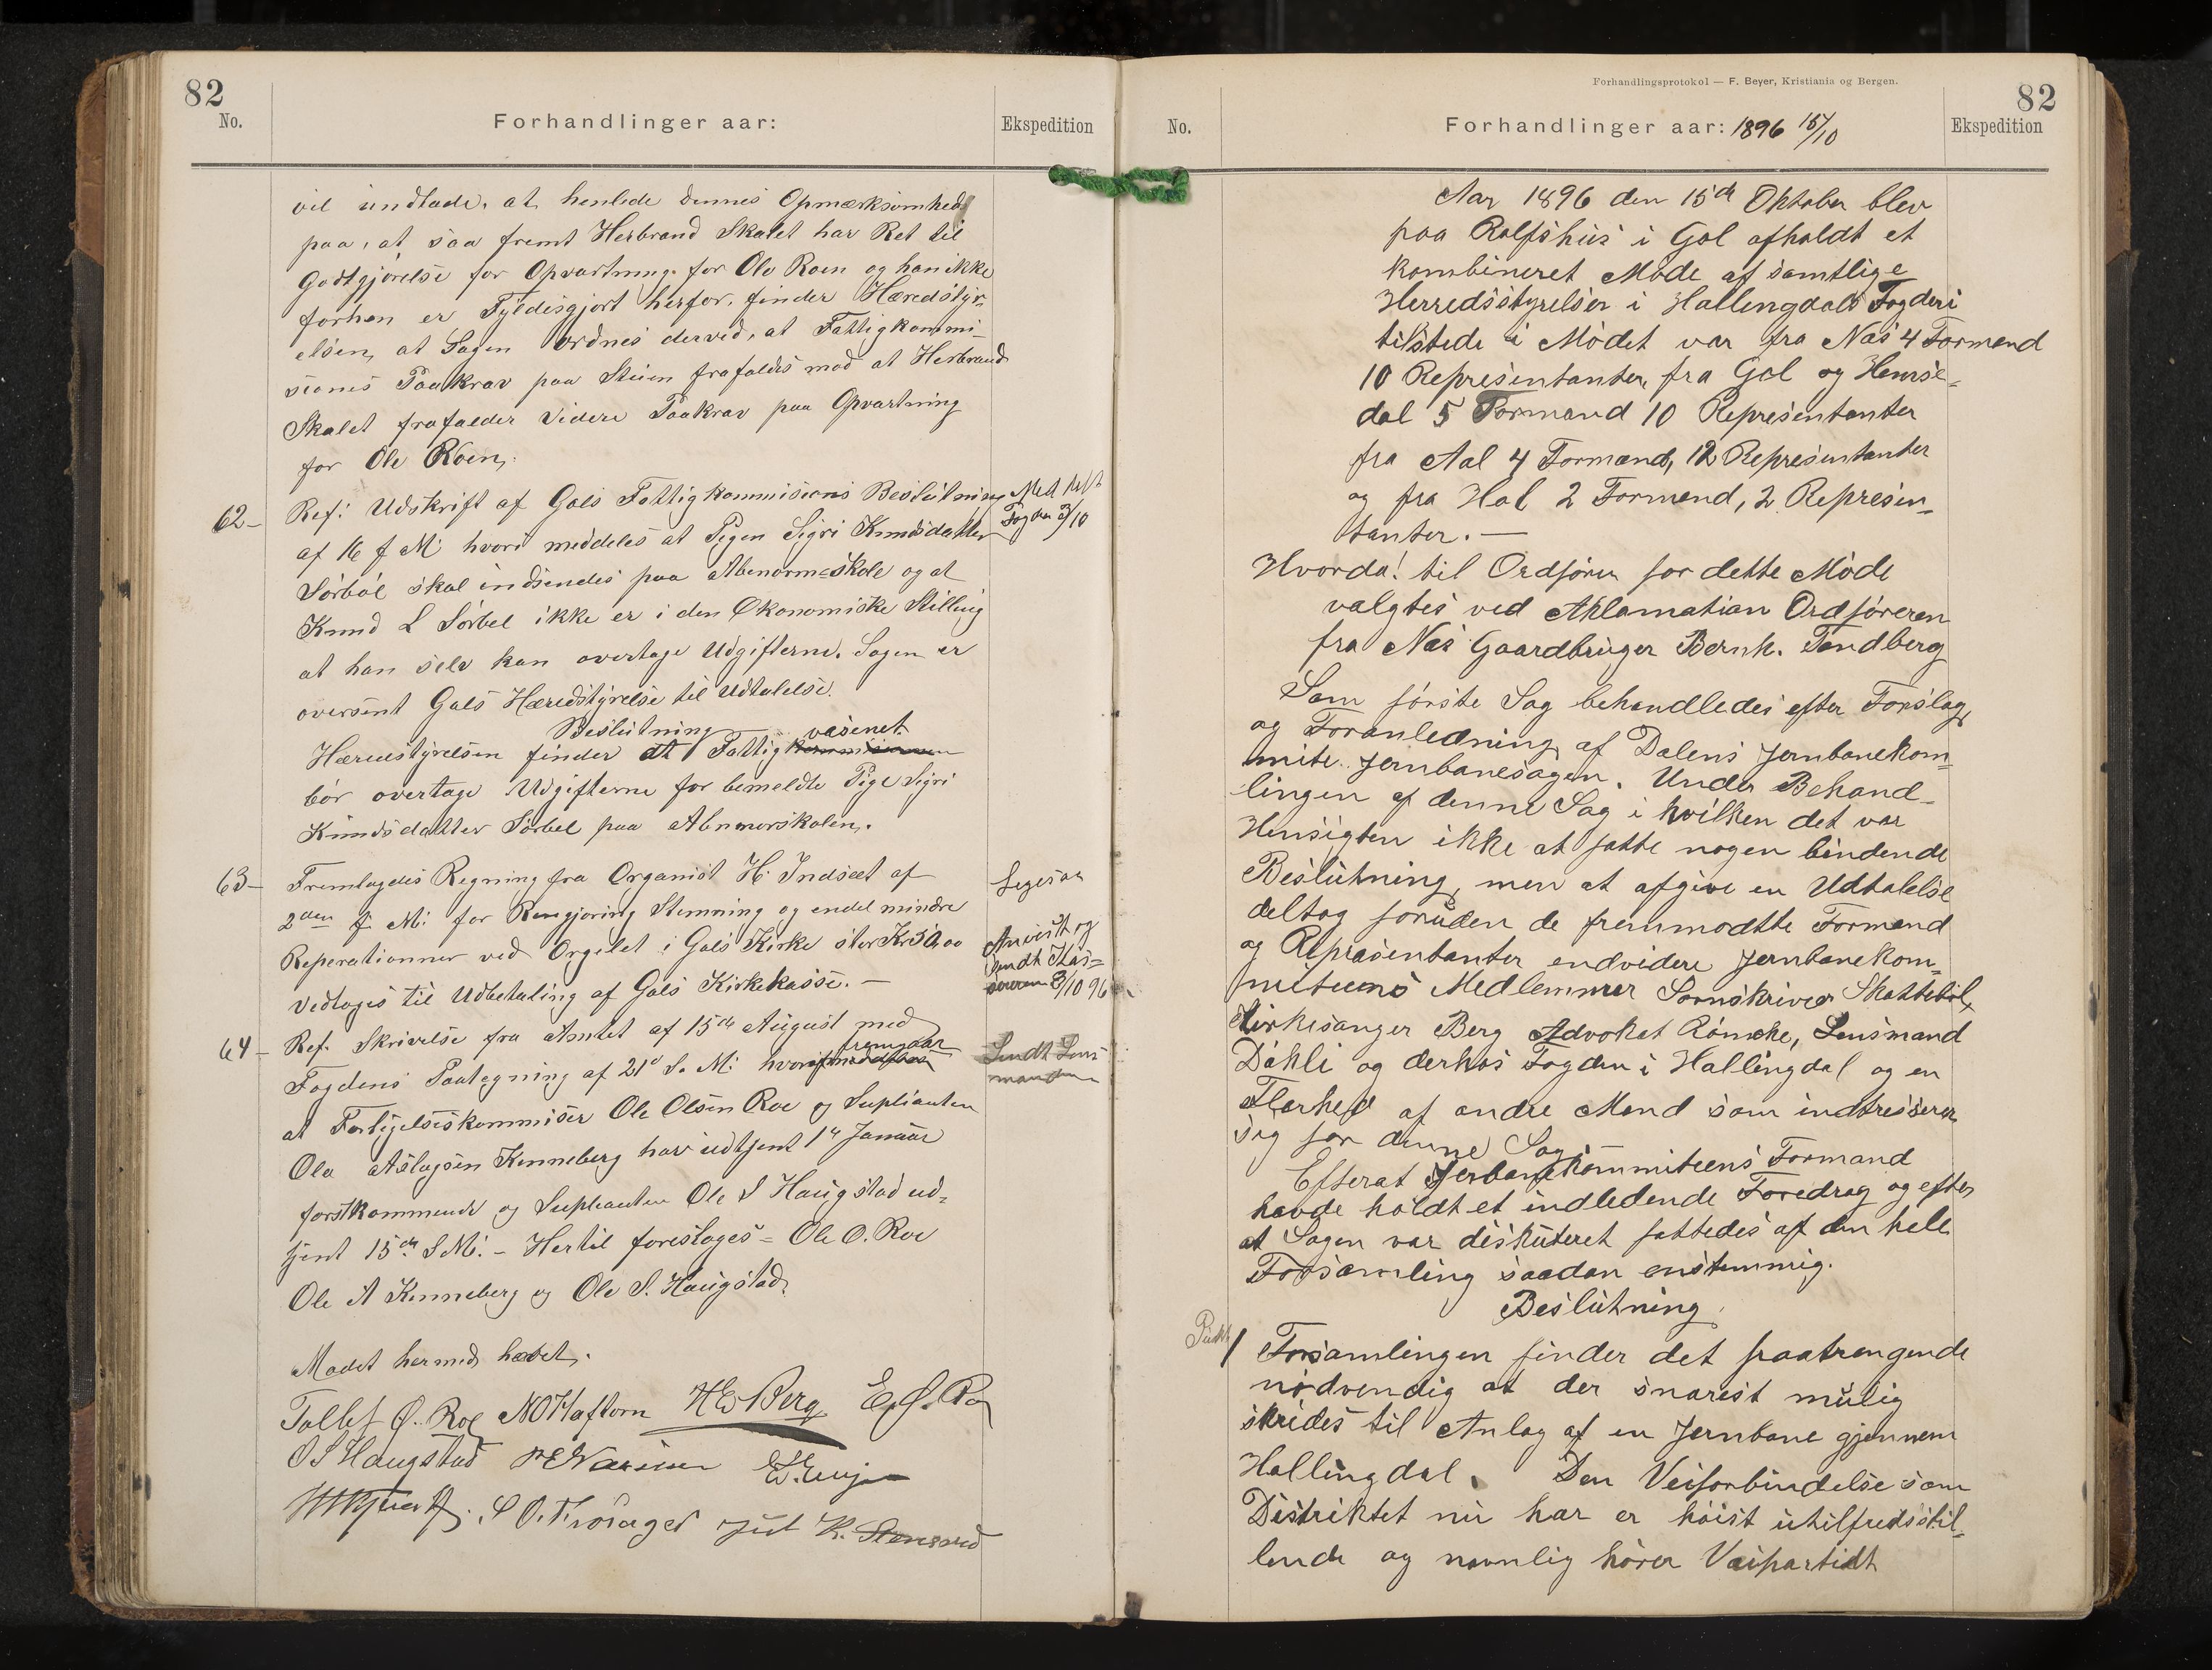 82
No.
Forhandlinger aar:
Ekspedition
vil undlade, at henlede dennes Opmærksomhed
paa, at saa fremt Herbrand Skalet har Ret til
Godtgjörelse for Opvartning for Ole Roen og han ikke
forhen er Fyldesgjort herfor, finder Heredstyr-
elsen, at Sagen ordnes derved, at Fattigkommi-
sions Paakrav paa Stuen frafaldes mod at Herbrand
Skalet frafalder videre Paakrav paa Opvartning
for Ole Roen,
62 – Ref: Udskrift af Gols Fattigkommisions Beslutning
af 16 f M: hvori meddeles at Pigen Sigri Knudsdatter
Sörböl skal indsendes paa Abnorm=skole og at
Knud L Sörbel ikke er i den Økonomiske Stilling
at han selv kan overtage Udgifterne. Sagen er
oversent Gols Hæredstyrelse til Udtalelse.
Beslutning
Hæredstyrelsen finder at Fattigvæsenet
bör overtage Udgifterne for bemeldte Pige Sigri
Knudsdatter Sörbel paa Abnormskolen.
Fogden 3/10
63 – Fremlagdes Regning fra Organist H. Indsæt af
2den f. M: for Rengjöring Stemning og endel mindre
Reperationner ved Orgelet i Gols Kirke
Vedtoges til Udbetaling af Gols Kirkekasse. –
Anvist og
sendt Kas=
sereren 3/10 96
64 – Ref. Skrivelse fra Amtet af 15de August med
Fogdens Paategning af 21d s. M: hvoraf fremgaar
at Forligelseskommisær Ole Olsen Roe og Suplianten
Ola Aslagsen Kinneberg har udtjent 1st Januar
forstkommende og Suplianten Ole S Haugstad ud-
tjent 15de s M: – Hertil foreslages = Ole O. Roe
Ole A Kinneberg og Ole S. Haugstad.
Sendt Lens
manden
Mödet hermed hævet.
Tollef O. Roe NOHaftorn HEBerg
O S Haugstad
82
Forhandlingsprotokol — F. Beyer, Kristiania og Bergen.
No.
Forhandlinger aar: 1896 15/10
Ekspedition
Aar 1896 den 15de Oktober blev
paa Rolfshus i Gol afholdt et
kombineret Möde af samtlige
Herredsstyrelser i Hallingdals Fogderi
tilstede i Mödet var fra Næs 4 Formænd
10 Representanter, fra Gol og Hemse-
dal 5 Formænd 10 Representanter
fra Aal 4 Formænd, 12 Representanter
og fra Hol 2 Formænd, 2 Represen-
tanter. –
Hvorda! til Ordförer for dette Möde
valgtes ved Aklamation Ordföreren
fra Næs Gaardbruger Bernh. Tandberg
Som förste Sag behandledes efter Forslag
og Foranledning af Dalens Jernbanekom-
mite Jernbanesagen. Under Behand-
lingen af denne Sag i hvilken det var
Hensigten ikke at fatte nogen bindende
Beslutning, men at afgive en Udtalelse
deltog foruden de fremmödte Formænd
og Repræsentanter endvidere Jernbanekom-
miteens Medlemmer Sorenskriver Skattebøl,
Kirkesanger Berg Advokat Römcke, Lensmand
Dökli og derhos Fogden i Hallingdal og en
Flerhed af andre Mænd som indtresserer
sig for denne Sag.
Efterat Jerbanekommiteens Formand
havde holdt et indledende Foredrag og efter
at Sagen var diskuteret fattedes af den hele
Forsamling saadan enstemmig.
Beslutning.
Punkt 1 Forsamlingen finder det paatrængende
nödvendig at der snarest mulig
skrides til Anlæg af en Jernbane gjennem
Hallingdal. Den Veiforbindelse som
Distriktet nu har er höist utilfredsstil-
lende og navnlig hörer Veipartiet